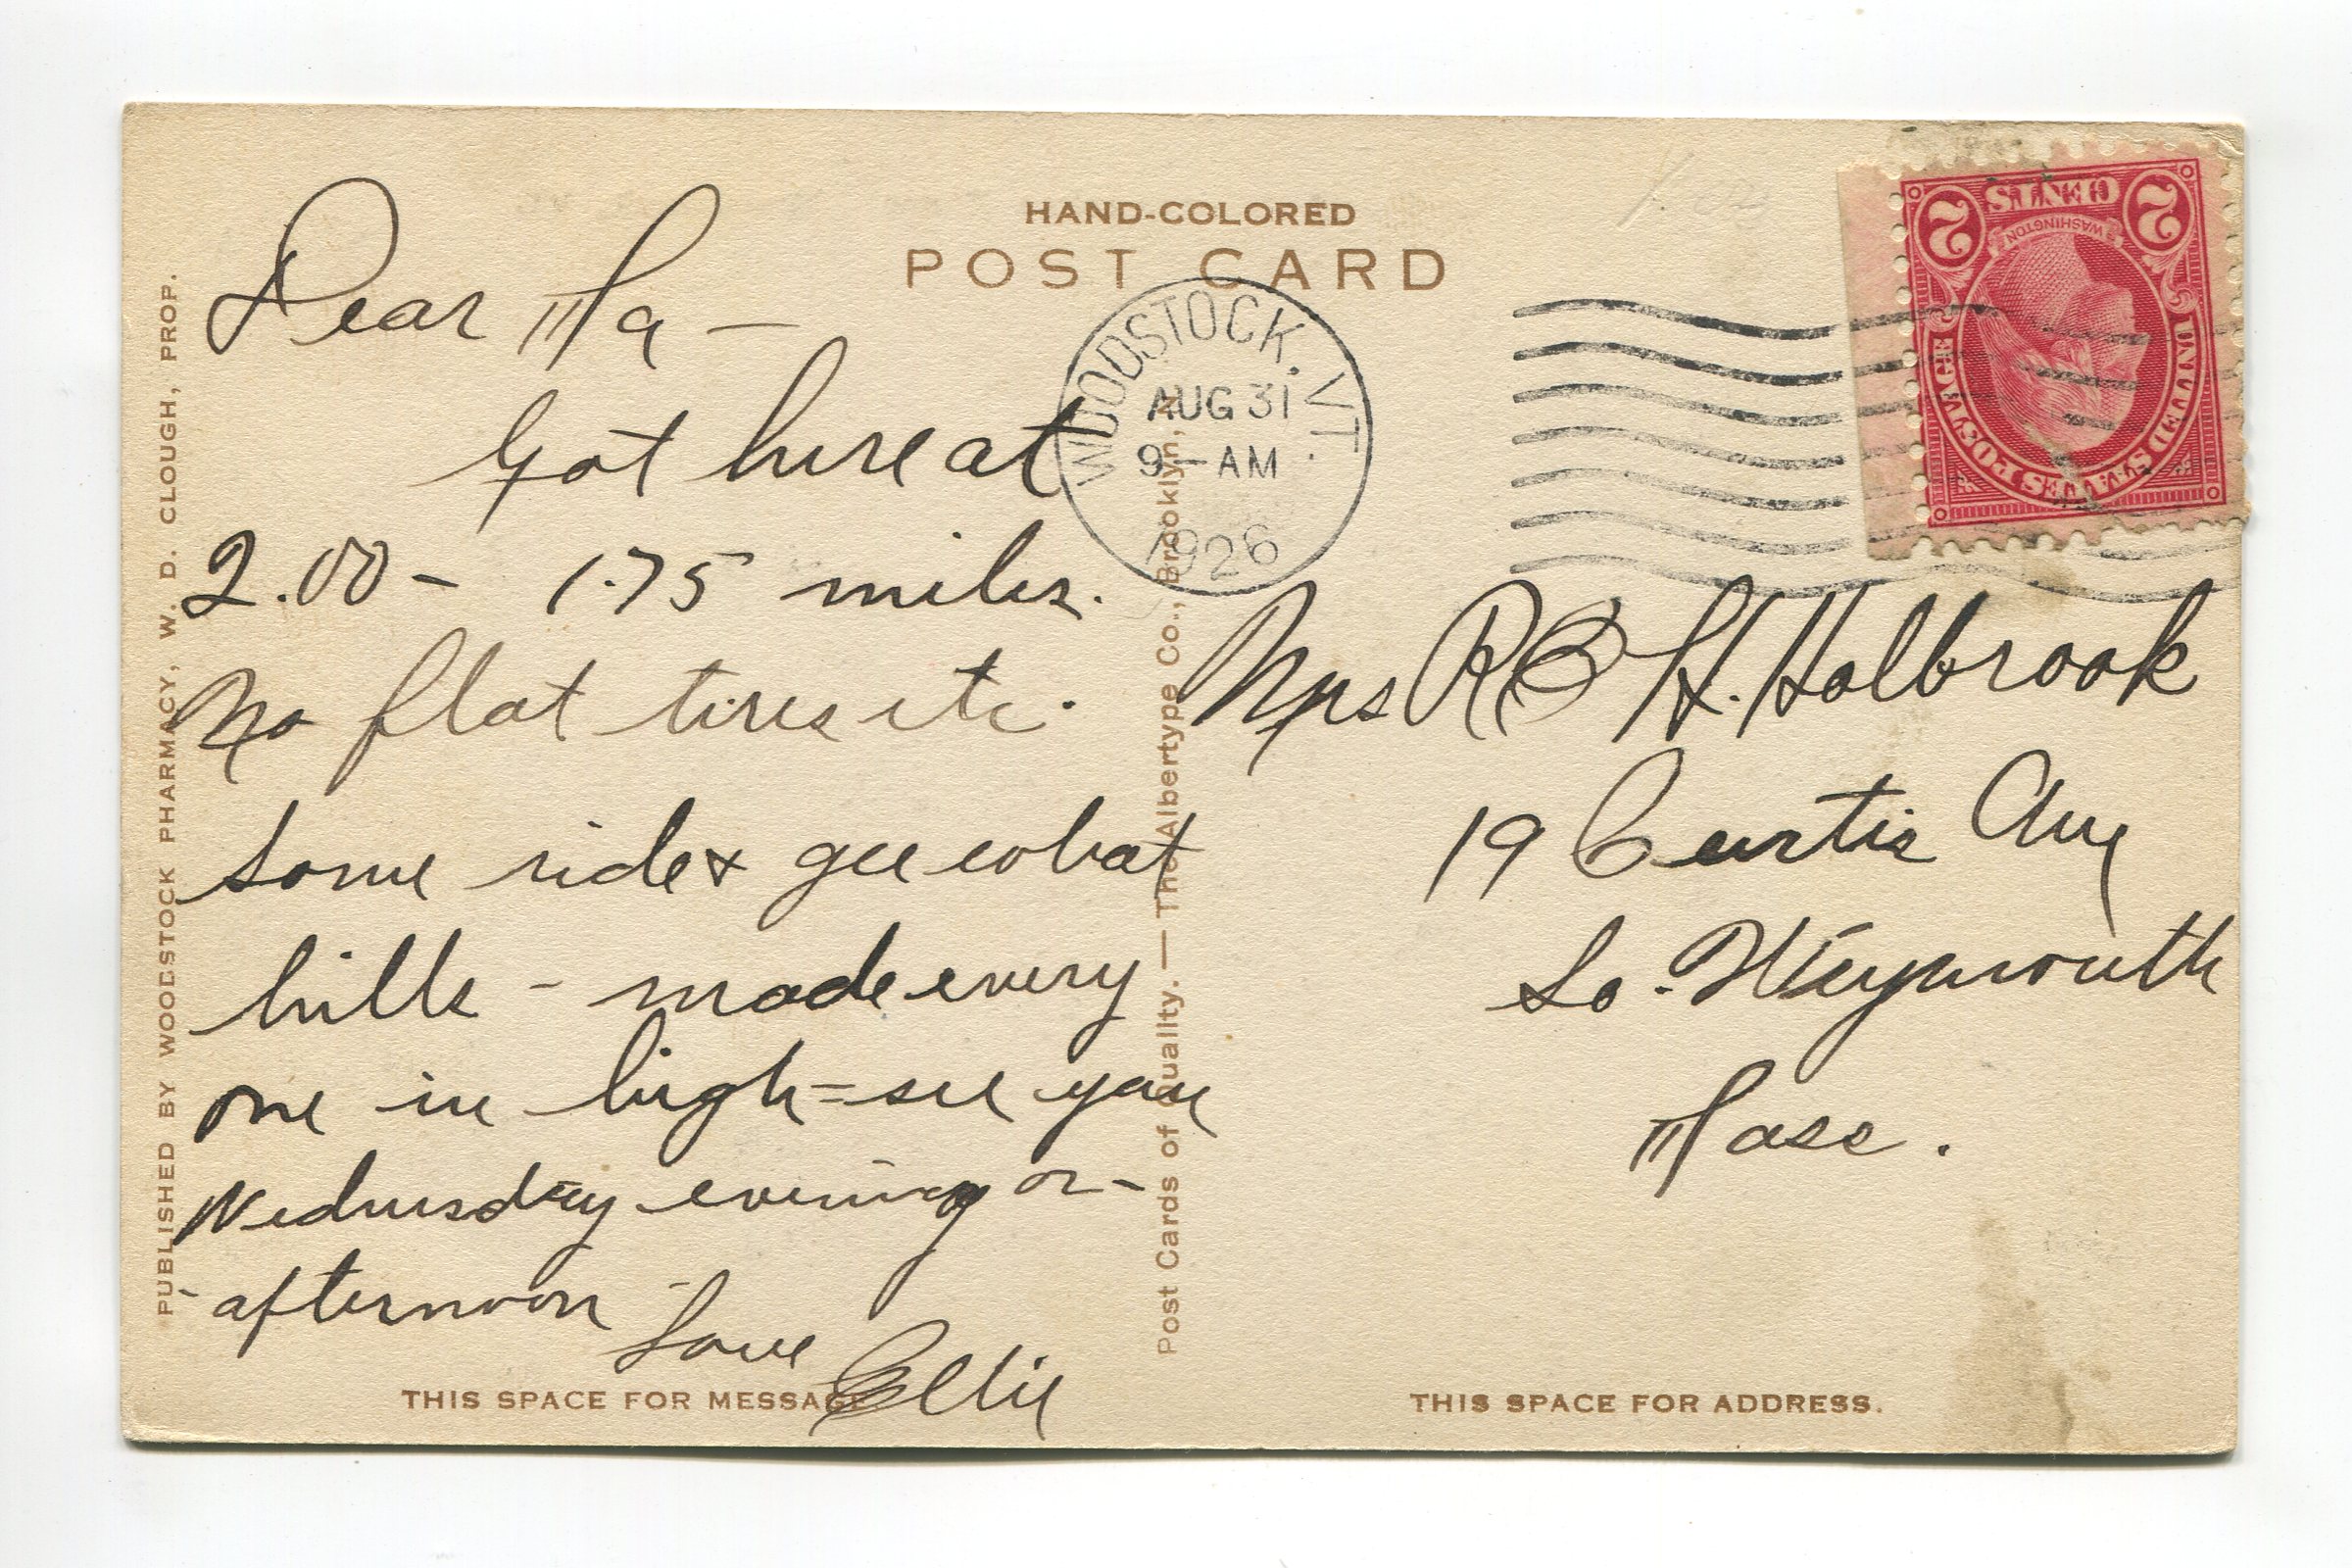 HAND-COLORED
POST CARD
PUBLISHED BY WOODSTOCK PHARMACY, W. D. CLOUGH, PROP.
Dear Ma —
Got here at
2.00 - 175 miles.
No flat tires etc.
Some ride & gee what
hills - made every
one in high = see you
Wednesday evening or -
afternoon
Love
Ellie
THIS SPACE FOR MESSAGE
Post Cards of Quality. — The Albertype Co., Brooklyn, N.
WOODSTOCK. VT.
AUG 31
9 - AM
1926
2 CENTS 2
WASHINGTON
UNITED STATES POSTAGE
Mrs R H. Holbrook
19 Curtis Ave
So. Weymouth
Mass.
THIS SPACE FOR ADDRESS.